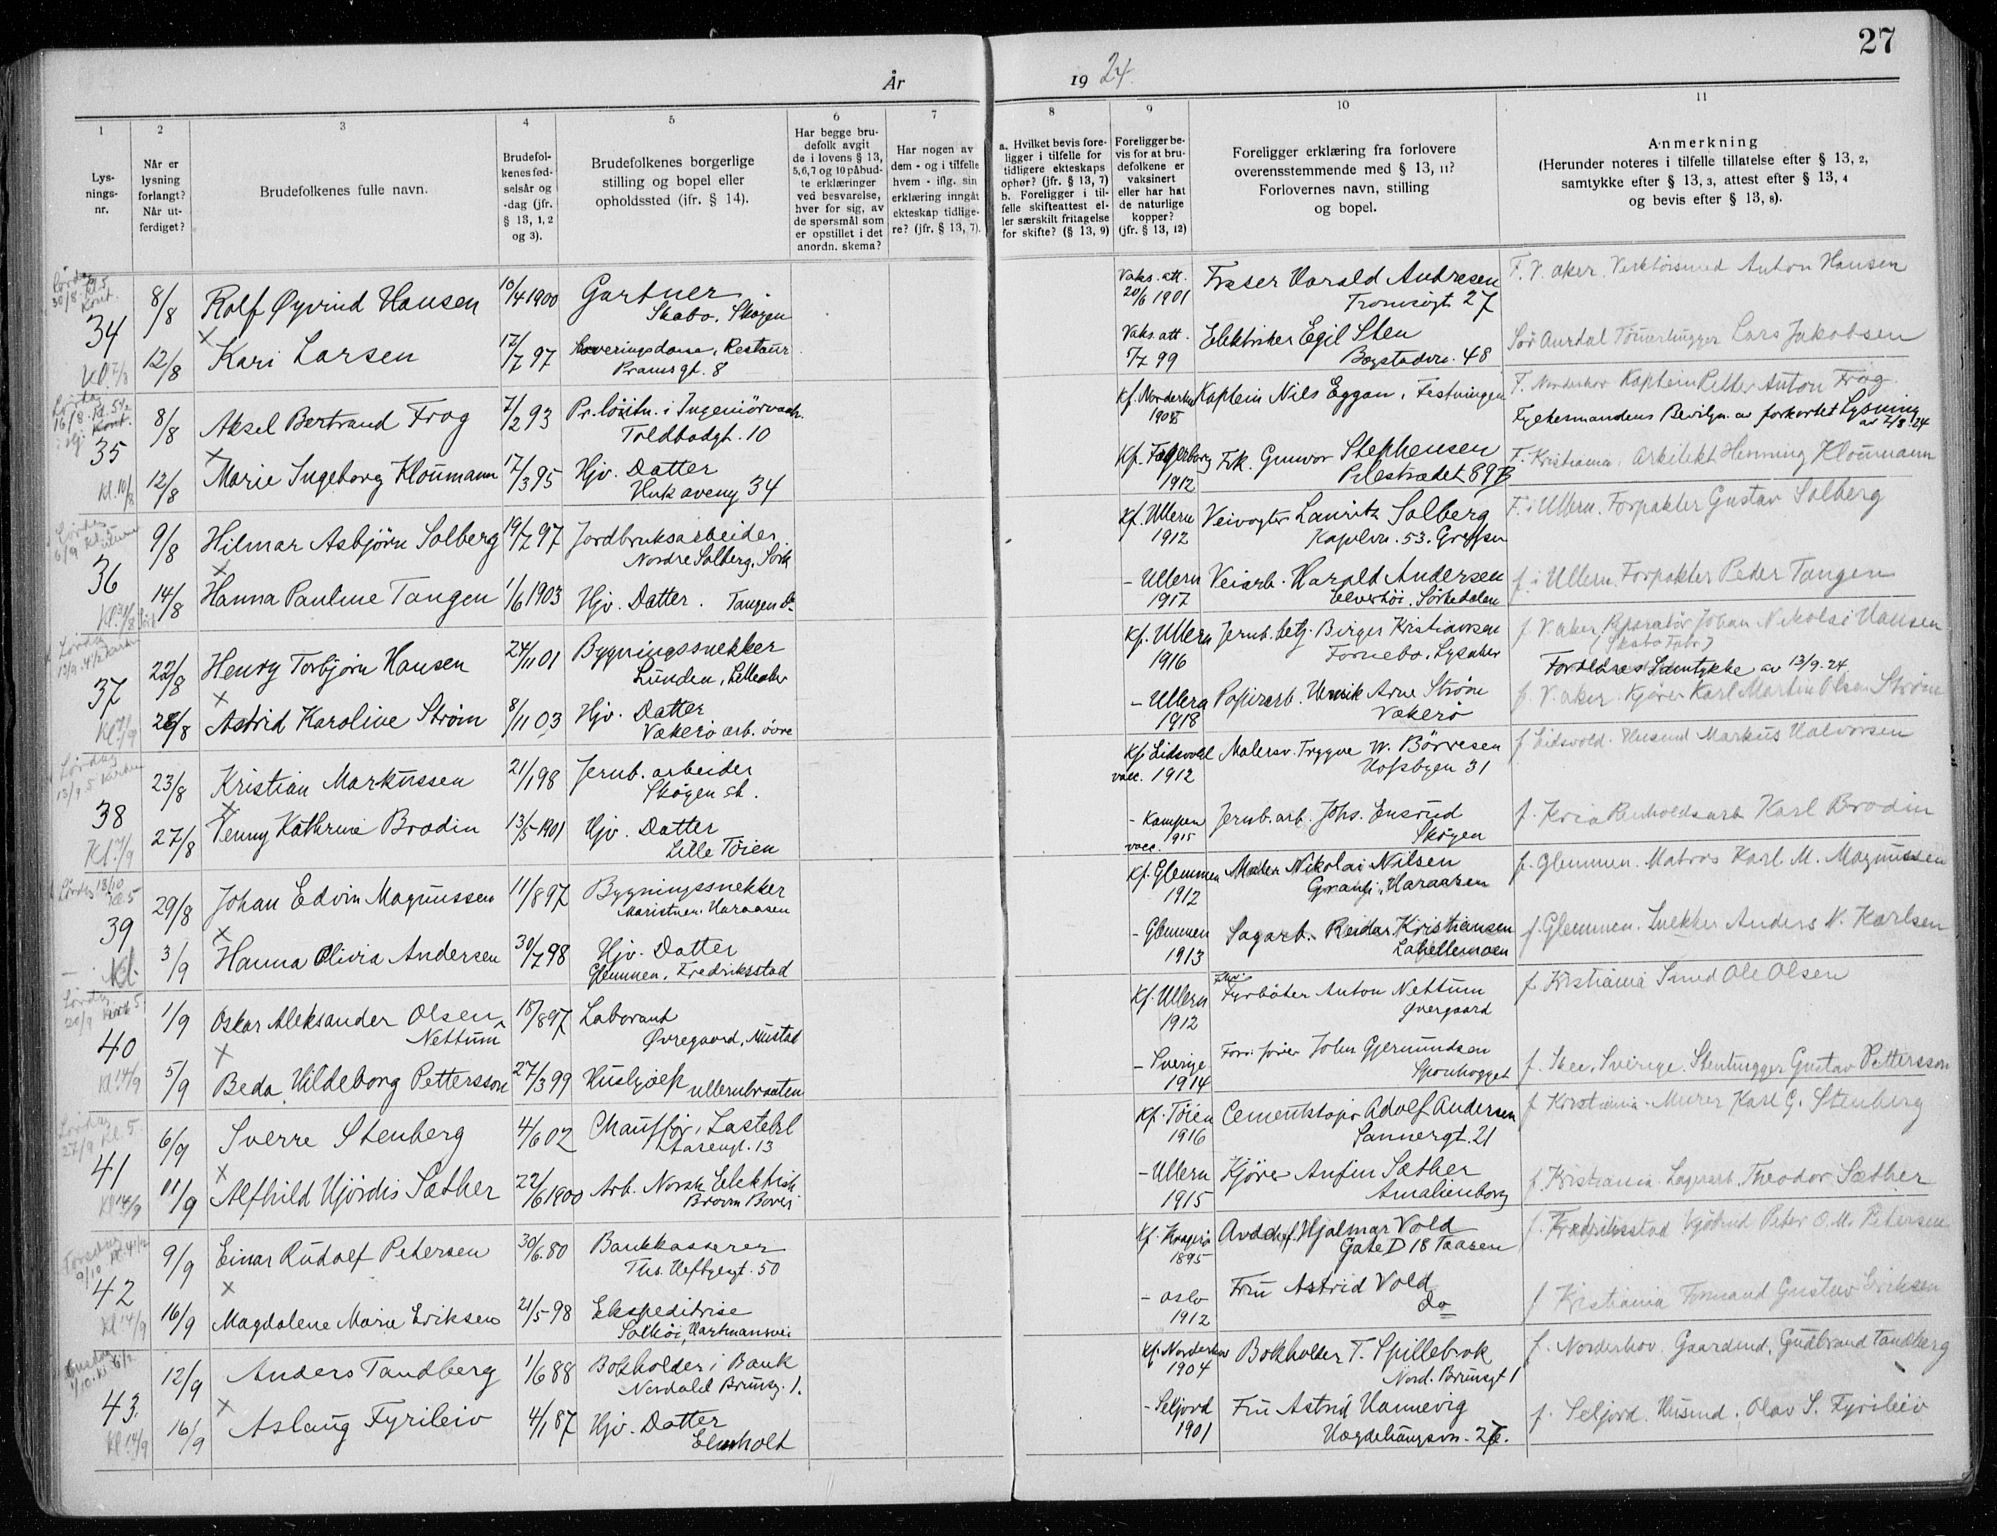 27
År 1924.
1
2
3
4
5
6
7
8
9
10
11
Lys-
nings-
nr.
Når er
lysning
forlangt?
Når ut-
ferdiget?
Brudefolkenes fulle navn.
Brudefol-
kenes fød-
selsår og
-dag (jfr.
§ 13, 1, 2
og 3).
Brudefolkenes borgerlige
stilling og bopel eller
opholdssted (jfr. § 14).
Har begge bru-
defolk avgit
de i lovens § 13,
5,6,7 og 10 påbud-
te erklæringer
ved besvarelse,
hver for sig, av
de spørsmål som
er opstillet i det
anordn. skema?
Har nogen av
dem - og i tilfelle
hvem - iflg. sin
erklæring inngått
ekteskap tidlige-
re? (jfr. § 13, 7).
a. Hvilket bevis fore-
ligger i tilfelle for
tidligere ekteskaps
ophør? (jfr. § 13, 7)
b. Foreligger i til-
felle skifteattest el-
ler særskilt fritagelse
for skifte? (§ 13, 9)
Foreligger be-
vis for at bru-
defolkene er
vaksinert
eller har hat
de naturlige
kopper?
(jfr. § 13, 12)
Foreligger erklæring fra forlovere
overensstemmende med § 13, 11?
Forlovernes navn, stilling
og bopel.
Anmerkning
(Herunder noteres i tilfelle tillatelse efter § 13, 2,
samtykke efter § 13, 3, attest efter § 13, 4
og bevis efter § 13, 8).
Lørdag 30/8 Kl. 5 Kont.
34
8/8 Rolf Øyvind Hansen 10/4 1900 Gartner Skabo, Skøyen
Vaks. att. 20/6 1901 Harald Andresen Tromsøgt. 27
F. V. aker. Verktøismed Anton Hansen
Kl. 7/8
12/8 Kari Larsen 12/7 97 Serveringsdame, Restaur. Pramsgt. 8
Vaks. att. 7/7 99 Elektriker Egil Sten Bogstadvn. 48
Sør Aurdal Tømmerhugger Lars Jakobsen
16/8. Kl. 5 1/2 Kont.
35
8/8 Aksel Bertrand Frog 7/2 93 Pr. løitn. i Ingeniørvaab. Toldbodgt. 10
Kf. Norderhov Kaptein Nils Eggan, Festningen
F. Norderhov Kaptein Petter Anton Frog
Fylkesmandens Bevilgn. av forkortet Lysning av 7/8 24
Kl. 10/8
12/8 Marie Ingeborg Kloumann 17/3 95 Hjv. Datter Huk aveny 34
Kf. Fagerborg 1912 Frk. Gunvor Stephensen Pilestrædet 89 B
F. Kristiania. Arkitekt Henning Kloumann
Lørdag 6/9 Kl. Ullern
36
9/8 Hilmar Asbjørn Solberg 19/7 97 Jordbruksarbeider Nordre Solberg, Sørk
Kf. Ullern 1912 Veivogter Lauritz Solberg Kapelvn. 53. Grefsen
F. i Ullern. Forpakter Gustav Solberg
14/8 Hanna Pauline Tangen 1/6 1903 Hjv. Datter. Tangen Do
- Ullern 1917 Veiarb. Harald Andersen Elverhöi, Sørkedalen
f. i Ullern. Forpakter Peder Tangen
Lørdag 13/9. 4 1/2 Kirken
37
22/8 Henry Torbjørn Hansen 24/11 01 Bygningssnekker Lunden, Lilleaker
Kf. Ullern 1916 Jernb. betj. Birger Kristiansen Fornebo, Lysaker
f. V. aker Reparatør Johan Nikolai Hansen (Skabo Fabr)
Forældres Samtykke av 13/9. 24
Kl 7/9
28/8 Astrid Karoline Strøm 8/11 03 Hjv. Datter Vækerø arb. övre
- Ullern 1918 Papirarb. Henrik Arne Strøm Vækerø
f. V. aker. Kjører Karl Martin Olsen Strøm
Lørdag 13/9 5 Kirken
38
23/8 Kristian Markussen 21/1 98 Jernb. arbeider Skøyen st.
Kf. Eidsvold vacc. 1912 Malersv. Trygve W. Börresen Hofsbyen 31
f. Eidsvold. Husmd Markus Halvorsen
Kl. 7/9
27/8 Jenny Kathrine Brodin 13/5 1901 Hjv. Datter Lille Töien
- Kampen vacc. 915 Jernb. arb. Johs. Ensrud Skøyen
f. Kria Renholdsarb Karl Brodin
Lørdag 18/10 Kl. 5
39
29/8 Johan Edvin Magnussen 11/8 97 Bygningssnekker Haraasen
Kf. Glemmen 1912 Maler Nikolai Nilsen Haraasen
f. Glemmen. Matros Karl M. Magnussen
Kl.
3/9 Hanna Olivia Andersen 30/7 98 Hjv. Datter Glemmen, Fredriksstad
- Glemmen 1913 Sagarb. Reidar Kristiansen Labellemoen
f. Glemmen. Snekker Anders N. Karlsen
Lørdag 20/9 Kirk 5.
40
1/9 Oskar Aleksander Olsen Nettum 18/8 97 Laborant Øvregaard, Mustad
Kf. Ullern 1912 Fyrböter Anton Nettum Øvregaard
f. Kristiania Smed Ole Olsen
Kl 14/9
5/9 Beda Hildeborg Pettersson 27/3 99 Hushjælp Ullernbraaten
- Sverige 1914 John Gjermundsen Sponhogget
f. Skee, Sverige. Stenhugger Gustav Pettersson
Lørdag 27/9 Kl. 5
41
6/9 Sverre Stenberg 4/6 02 Chauffør, Lastebil 13
Kf. Töien 1916 Cementstöper Adolf Andersen Sannergt. 21
f. Kristiania. Murer Karl G. Stenberg
Kl 14/9
11/9 Alfhild Hjördis Sæther 22/6 1900 Arb. Norsk Elektrisk Brown Boveri
- Ullern 1915 Kjører Anfin Sæther Amalienborg
f. Kristiania. Lagerarb. Theodor Sæther
Torsdag 9/10 Kl. 4 1/2
42
9/9 Einar Rudolf Petersen 30/6. 80 Bankkasserer Ths. Heftyesgt. 50
Kf. Kragerø 1895 Avd.chef. Hjalmar Vold Gate D 18 Taasen
f. Fredriksstad Peter O. M. Petersen
Kl 14/9
16/9 Magdalene Marie Eriksen 21/5 98 Ekspeditrise Solhöi, Hartmansvei
- Oslo 1912 Fru Astrid Vold Do
f Kristiania Formand Gustav Eriksen
Onsdag 1/10. Kl. 6 1/2
43.
12/9 Anders Tandberg 1/6 88 Bokholder i Bank Nordahl Brunsg. 1.
Kf. Norderhov 1904 Bokholder T. Spillebrok Nord. Brunsgt 1
f. Norderhov. Gaardmd. Gudbrand Tandberg
Kl. 14/9
16/9 Aslaug Fyrileiv 4/1 87 Hjv. Datter Elmholt
- Seljord 1901 Fru Astrid Hannevig Haagdehaugsvn.
f. Seljord. Husmd. Olav S. Fyrileiv